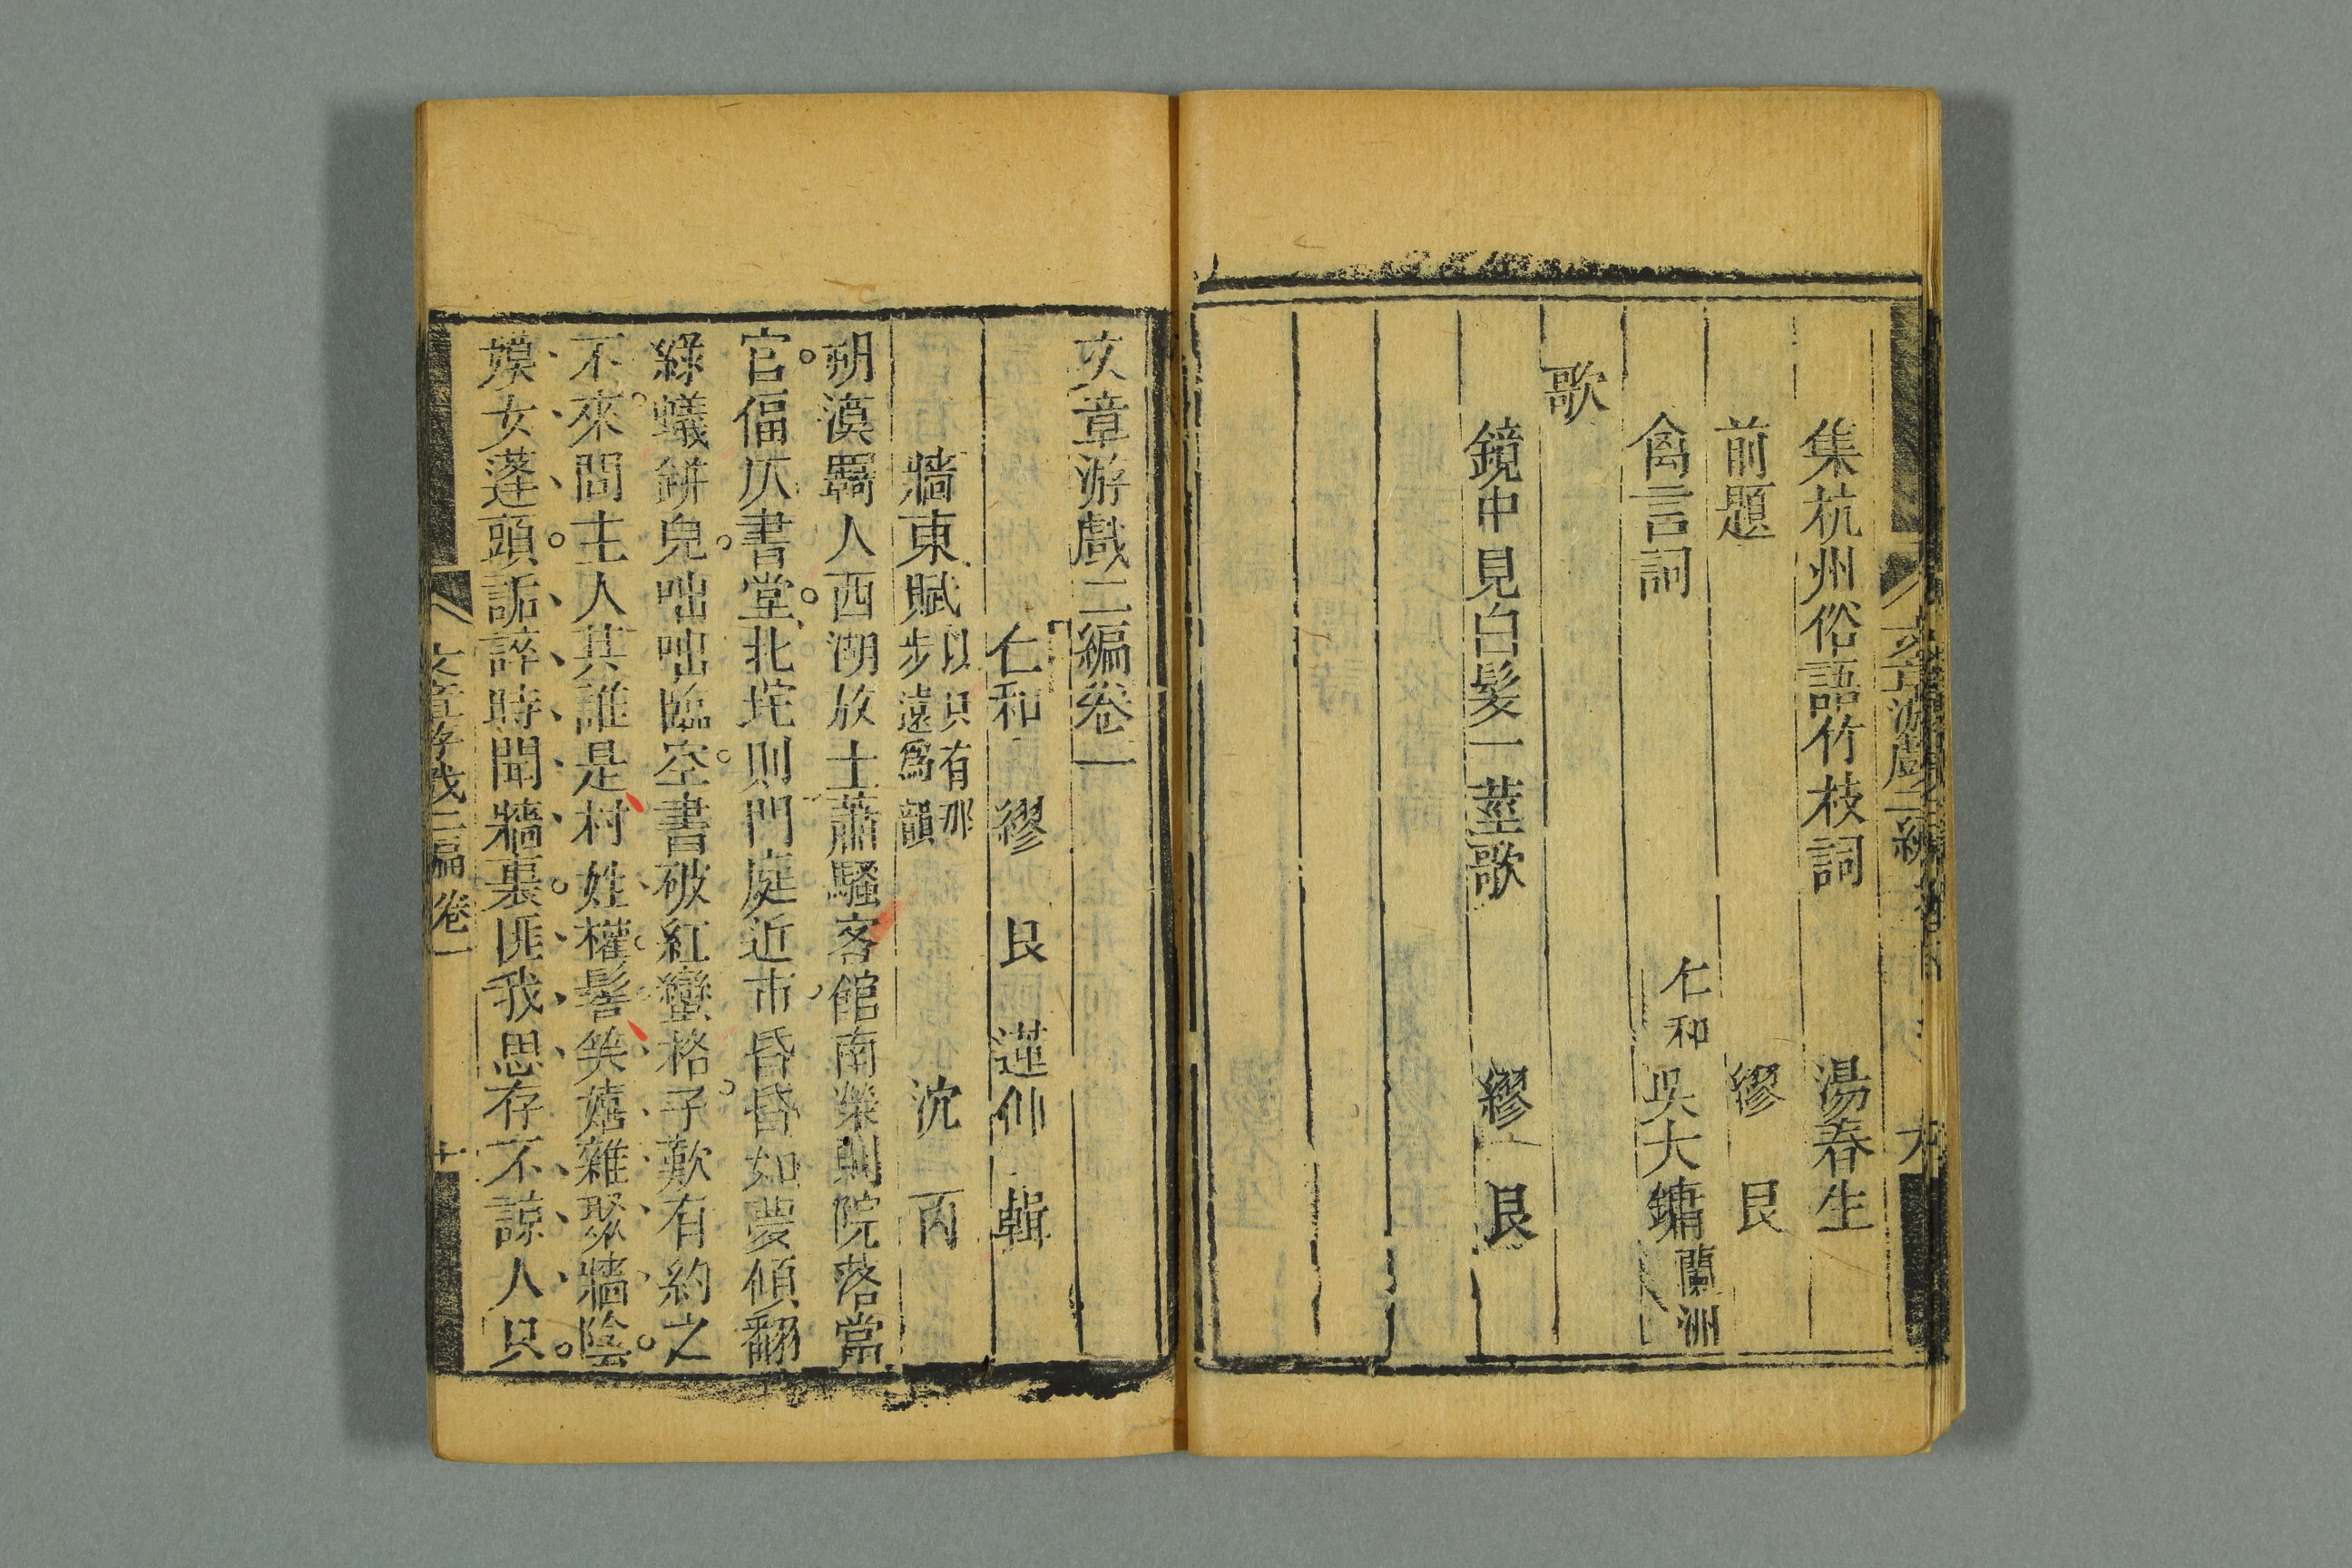 集杭州俗語竹枝詞 湯春生
前題 繆艮
禽言詞 仁和 吳大鏞 蘭洲
歌
鏡中見白髮一莖歌 繆艮
文章游戲二編卷一
仁和 繆艮 蓮仙 輯
牆東賦 以只有那步遠爲韻 沈丙
朔漠羈人西湖放士蕭騷客館南榮剸院落當
官偪仄書堂北垞則門庭近市昏昏如夢傾翻
綠蟻缾皃咄咄臨空書破紅蠻格子歎有約之
不來問主人其誰是村姓權髻笑嬉雜聚牆陰
媄女蓬頭詬誶時聞牆裏匪我思存不諒人只
文章游戲二編卷一